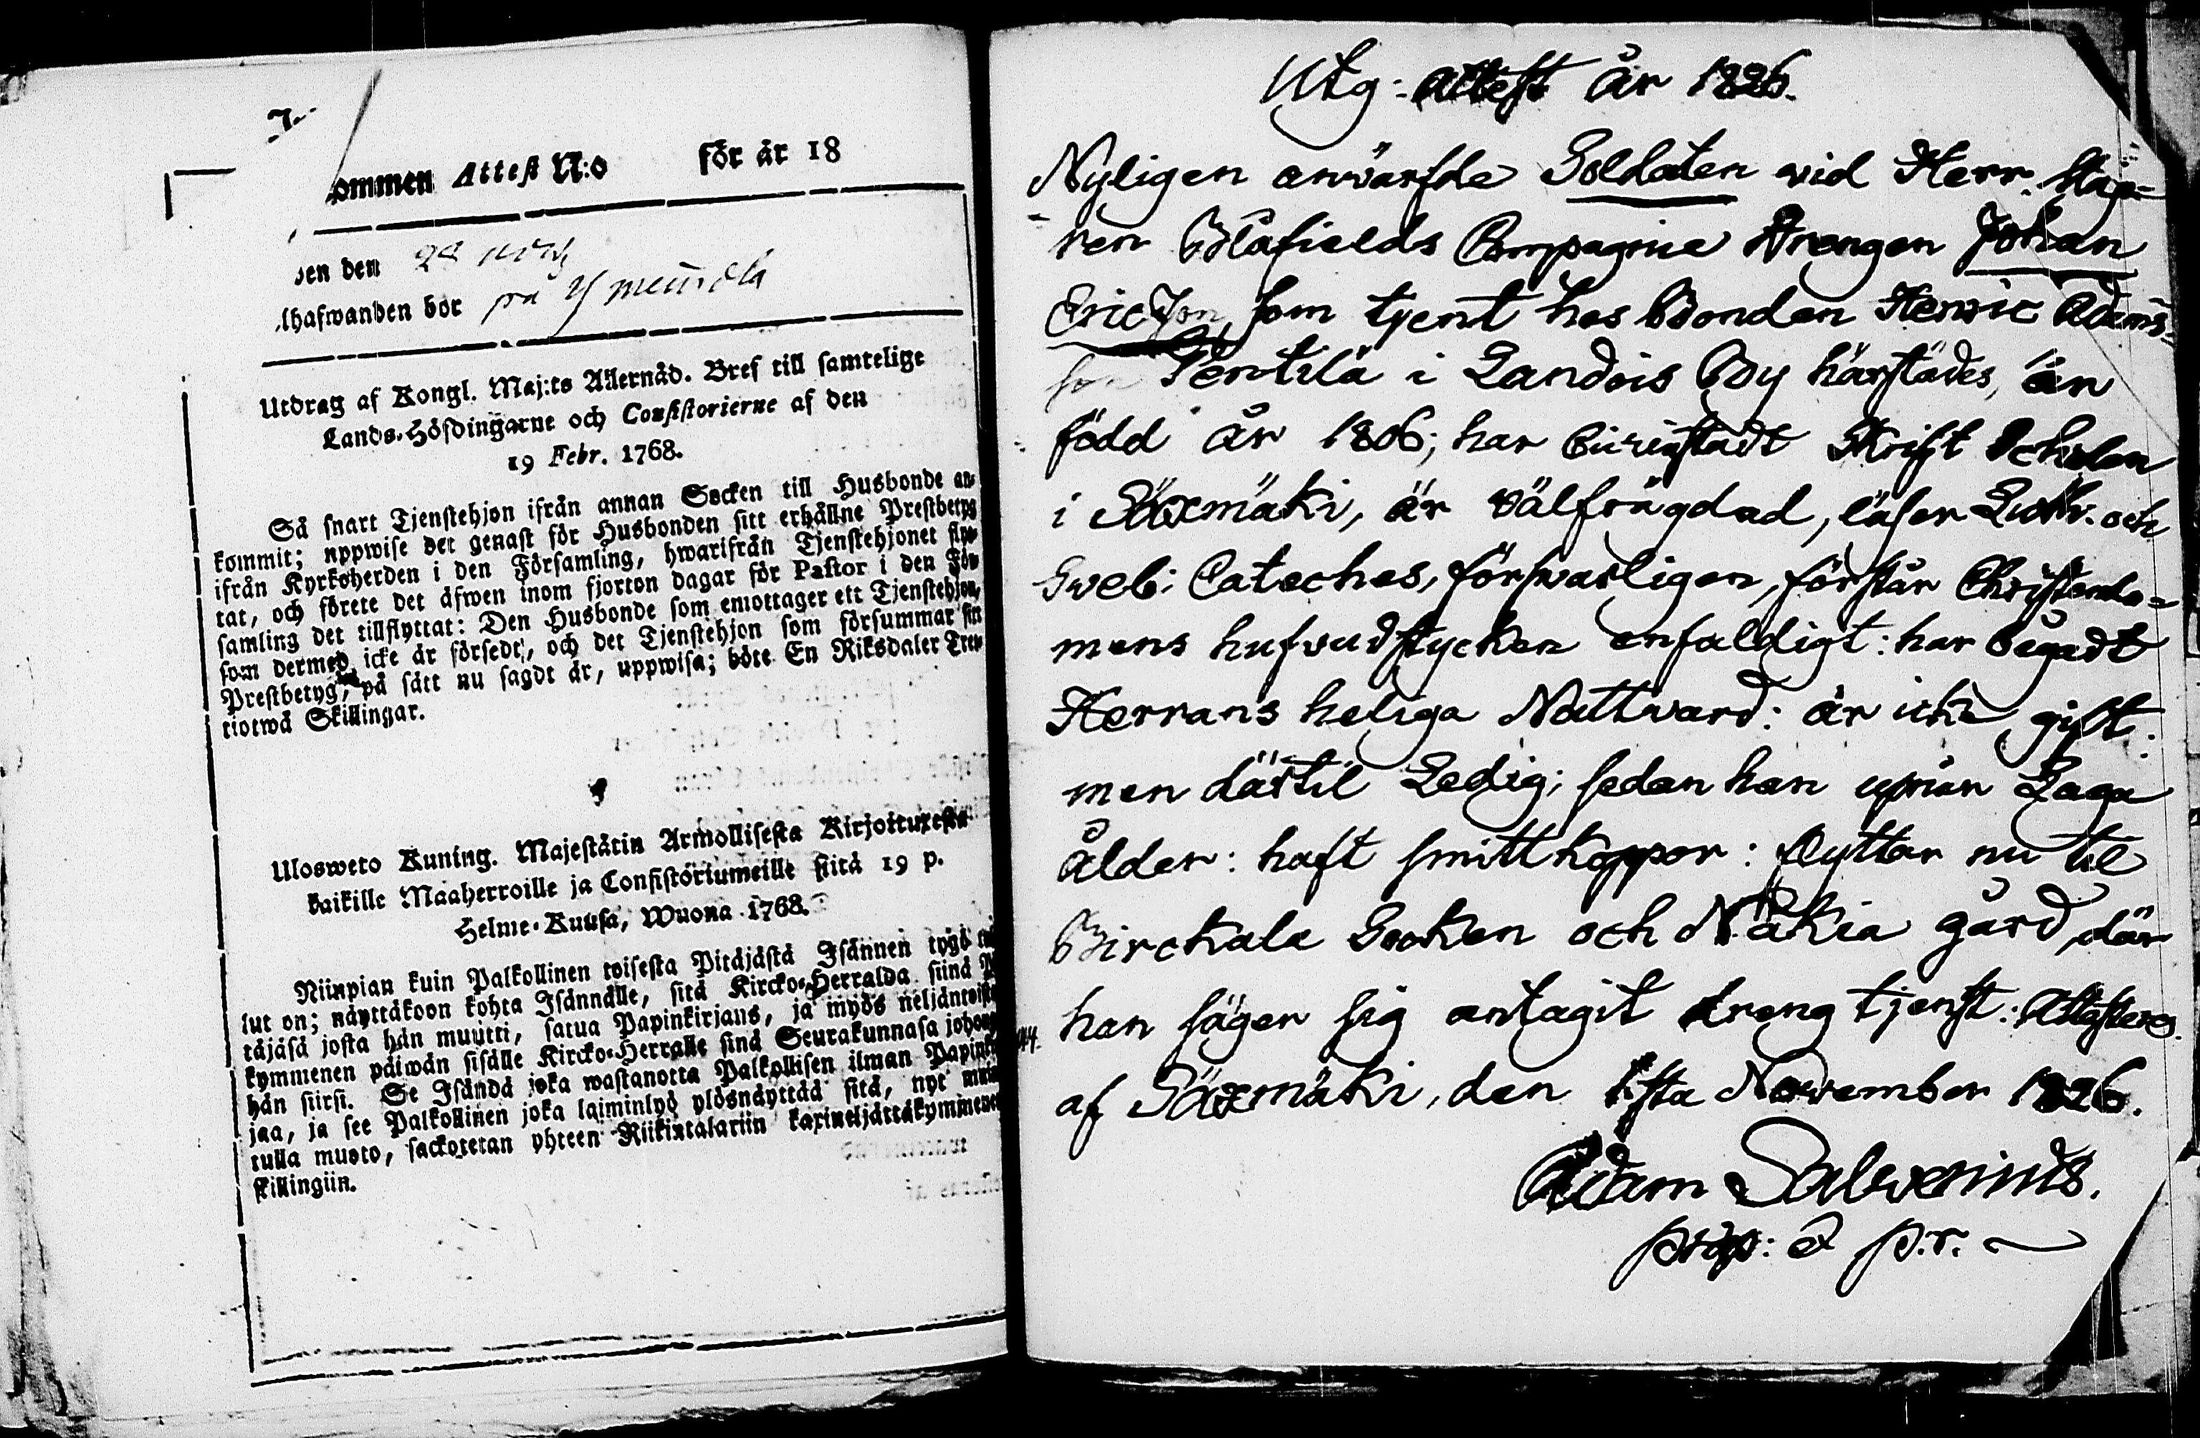 ommen Attest N:o för år 18
en den
lhafwanden bor på
Utdrag af Kongl. Maj:ts Allernåd. Bref till samtelige
Lands-Höfdingarne och Consistorierne af den
19 Febr. 1768.
Så snart Tjenstehjon ifrån annan Socken till Husbonde an-
kommit; uppwise det genast för Husbonden sitt erhållne Prestbetyg
ifrån Kyrkoherden i den Församling, hwarifrån Tjenstehjonet flyt-
tat, och förete det äfwen inom fjorton dagar för Pastor i den För-
samling det tillflyttat: Den Husbonde som emottager ett Tjenstehjon,
som dermed icke är försedt, och det Tjenstehjon som försummar sin
Prestbetyg, på sätt nu sagdt är, uppwisa; böte En Riksdaler Tret-
tiotwå Skillingar.
Ulosweto Kuning. Majestätin Armollisesta Kirjoituxesta
kaikille Maaherroille ja Consistoriumeille siitä 19 p.
Helme-Kuusa, Wuona 1768.
Niinpian kuin Palkollinen toisesta Pitäjästä Isännen tygö
lut on; näyttäkoon kohta Isännälle, sitä Kircko-Herralda siinä
täjäsä josta hän muutti, saatua Papinkirjans, ja myös neljäntoista
kymmenen päiwän sisälle Kircko-Herralle siinä Seurakunnasa johon
hän siirsi. Se Isändä joka wastanotta Palkollisen ilman Papinkir
jaa, ja see Palkollinen joka laiminlyö ylösnäyttää sitä, nyt
tulla muoto, sackotetan yhteen Riikintalariin kaxineljättäkymmenen
skillingiin.
Utg: Attest År 1826.
Nyligen anvärfde Soldaten vid Herr
ren Blåfields Compagnie Drengen Johan
Ericsson, som tjent hos Bonden Henric Adams-
son Pentilä i Landois By härstädes, är
född år 1806; har bivistadt Skrift Scholan
i Säxmäki, är välfrägdad, läser Luth. och
Sveb: Cateches, försvarligen, förstår Christendo-
mens hufvudstycken enfaldigt: har begådt
Herrans heliga Nattvard: är icke gift:
men därtil Ledig; sedan han upnår Laga
Ålder: haft smittkoppor: flyttar nu til
Birckala Socken och Nåkia gård, där
han säger sig antagit dreng tjenst: Attesteras
af Säxmäki, den 1sta November 1826.
Adam Salvenius.
prop: & p.r.